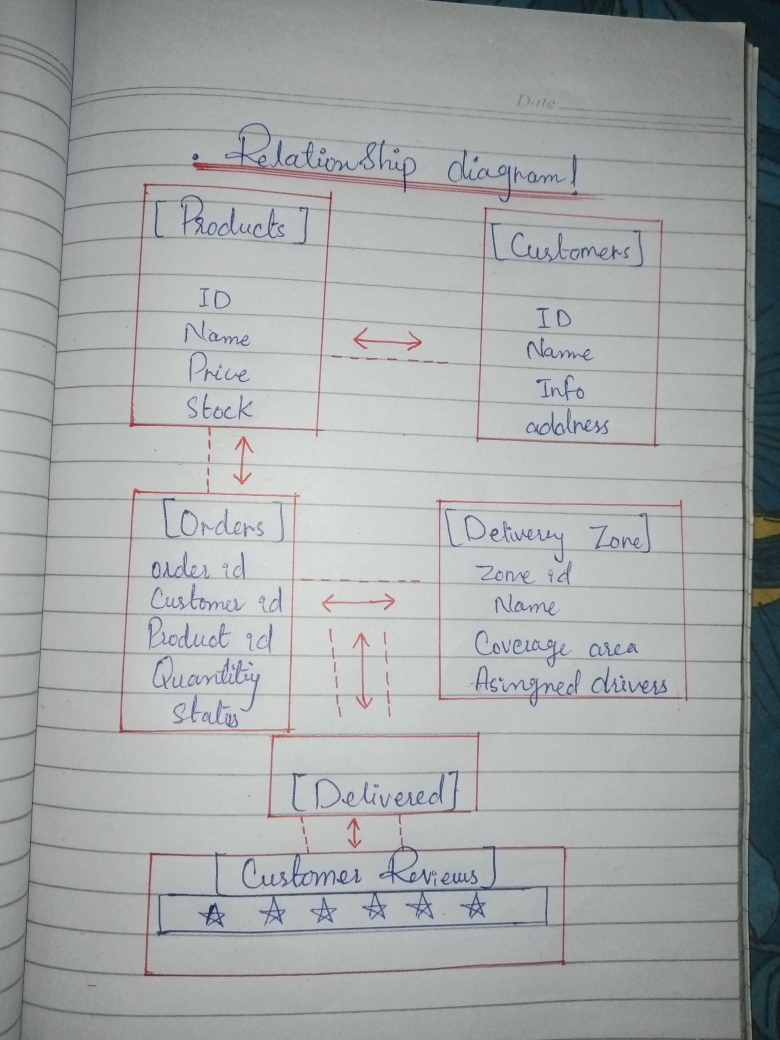 Date
. Relationship diagram!
[Products]
ID
Name
Price
Stock
[Customers]
ID
Name
Info
address
[Orders]
order id
Customer id
Product id
Quantitiy
Status
[Delivery Zone]
Zone id
Name
Coverage area
Asingned drivers
[Delivered]
[Customer Reviews]